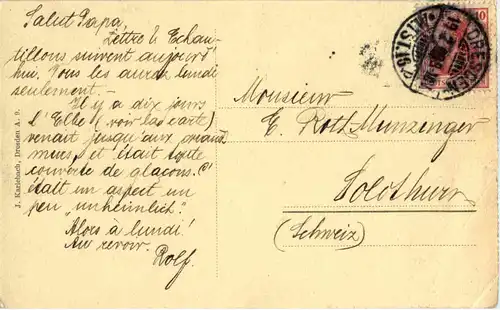 Salut Papa,
Lettre & Echan-
tillons suivent aujourd'
hui. Vous les aurez lundi
seulement. —
Il y a dix jours
l'Elbe (voir la carte)
venait jusqu'aux
murs, et était toute
couverte de glaçons. C'
était un aspect un
peu "unheimlich".
Alors à lundi!
Au revoir.
Rolf.
Monsieur
E. Roth Munzinger
Solothurn
(Schweiz)
J. Karlebach, Dresden A. 9.
10
DRESDEN
ALTST. 16